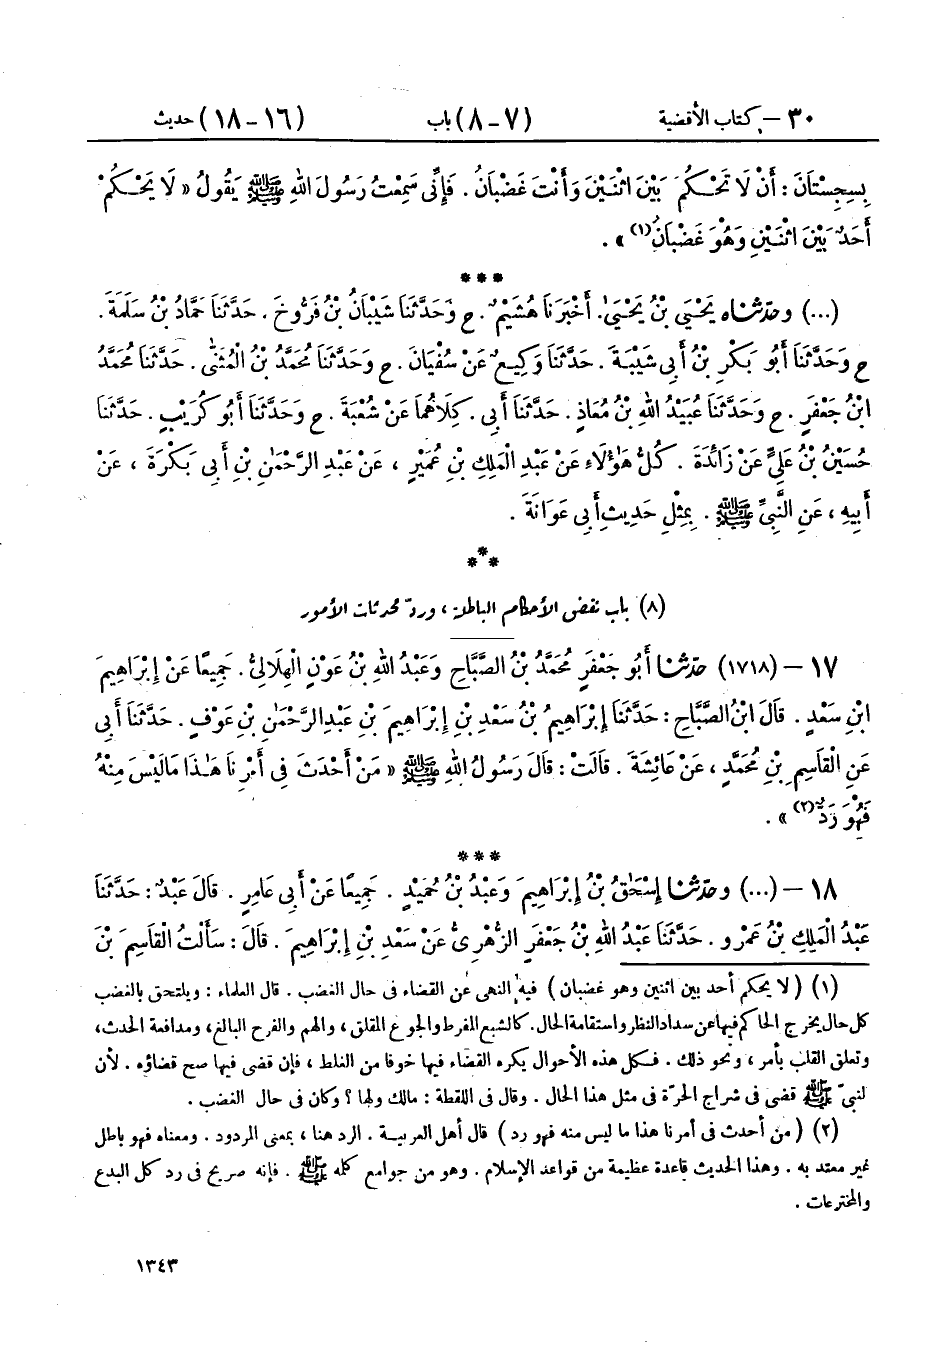 ٣٠ – كتاب الأقضية (٧-٨) باب (١٦-١٨) حديث
بِسِجِسْتَانَ : أَنْ لَا تَحْكُمَ بَيْنَ اثْنَيْنِ وَأَنْتَ غَضْبَانُ . فَإِنِّي سَمِعْتُ رَسُولَ اللهِ ﷺ يَقُولُ « لَا يَحْكُمْ
أَحَدٌ بَيْنَ اثْنَيْنِ وَهُوَ غَضْبَانُ(١) » .
***
(...) وحَدَّثَنَاه يَحْيَى بْنُ يَحْيَىٰ. أَخْبَرَنَا هُشَيْمٌ. ح وَحَدَّثَنَا شَيْبَانُ بْنُ فَرُّوخَ . حَدَّثَنَا حَمَّادُ بْنُ سَلَمَةَ .
ح وَحَدَّثَنَا أَبُو بَكْرِ بْنُ أَبِي شَيْبَةَ . حَدَّثَنَا وَكِيعٌ عَنْ سُفْيَانَ . ح وَحَدَّثَنَا مُحَمَّدُ بْنُ الْمُثَنَّى . حَدَّثَنَا مُحَمَّدُ
ابْنُ جَعْفَرٍ . ح وَحَدَّثَنَا عُبَيْدُ اللهِ بْنُ مُعَاذٍ . حَدَّثَنَا أَبِي . كِلَاهُمَا عَنْ شُعْبَةَ . ح وَحَدَّثَنَا أَبُو كُرَيْبٍ . حَدَّثَنَا
حُسَيْنُ بْنُ عَلِيٍّ عَنْ زَائِدَةَ . كُلُّ هَؤُلَاءِ عَنْ عَبْدِ الْمَلِكِ بْنِ عُمَيْرٍ ، عَنْ عَبْدِ الرَّحْمَنِ بْنِ أَبِي بَكْرَةَ ، عَنْ
أَبِيهِ ، عَنِ النَّبِيِّ ﷺ . بِمِثْلِ حَدِيثِ أَبِي عَوَانَةَ .
***
(٨) باب نقض الأحكام الباطلة ، وردّ محدثات الأمور
١٧ – (١٧١٨) حَدَّثَنَا أَبُو جَعْفَرٍ مُحَمَّدُ بْنُ الصَّبَّاحِ وَعَبْدُ اللهِ بْنُ عَوْنٍ الْهِلَالِيُّ . جَمِيعًا عَنْ إِبْرَاهِيمَ
ابْنِ سَعْدٍ . قَالَ ابْنُ الصَّبَّاحِ : حَدَّثَنَا إِبْرَاهِيمُ بْنُ سَعْدِ بْنِ إِبْرَاهِيمَ بْنِ عَبْدِ الرَّحْمَنِ بْنِ عَوْفٍ . حَدَّثَنَا أَبِي
عَنِ الْقَاسِمِ بْنِ مُحَمَّدٍ ، عَنْ عَائِشَةَ . قَالَتْ : قَالَ رَسُولُ اللهِ ﷺ « مَنْ أَحْدَثَ فِي أَمْرِنَا هَٰذَا مَا لَيْسَ مِنْهُ
فَهُوَ رَدٌّ(٢) » .
***
١٨ – (...) وحَدَّثَنَا إِسْحَٰقُ بْنُ إِبْرَاهِيمَ وَعَبْدُ بْنُ حُمَيْدٍ . جَمِيعًا عَنْ أَبِي عَامِرٍ . قَالَ عَبْدٌ : حَدَّثَنَا
عَبْدُ الْمَلِكِ بْنُ عَمْرٍو . حَدَّثَنَا عَبْدُ اللهِ بْنُ جَعْفَرٍ الزُّهْرِيُّ عَنْ سَعْدِ بْنِ إِبْرَاهِيمَ . قَالَ : سَأَلْتُ الْقَاسِمَ بْنَ
(١) ( لا يحكم أحد بين اثنين وهو غضبان ) فيه النهى عن القضاء فى حال الغضب . قال العلماء : ويلتحق بالغضب
كل حال يخرج الحاكم فيها عن سداد النظر واستقامة الحال. كالشبع المفرط والجوع المقلق ، والهم والفرح البالغ ، ومدافعة الحدث ،
وتعلق القلب بأمر ، ونحو ذلك . فكل هذه الأحوال يكره القضاء فيها خوفا من الغلط ، فإن قضى فيها صح قضاؤه . لأن
لنبىّ ﷺ قضى فى شراج الحرّة فى مثل هذا الحال . وقال فى اللقطة : مالك ولها ؟ وكان فى حال الغضب .
(٢) ( من أحدث فى أمرنا هذا ما ليس منه فهو رد ) قال أهل العربية . الرد هنا ، بمعنى المردود . ومعناه فهو باطل
غير معتد به . وهذا الحديث قاعدة عظيمة من قواعد الإسلام . وهو من جوامع كلمه ﷺ . فإنه صريح فى رد كل البدع
والمخترعات .
١٣٤٣